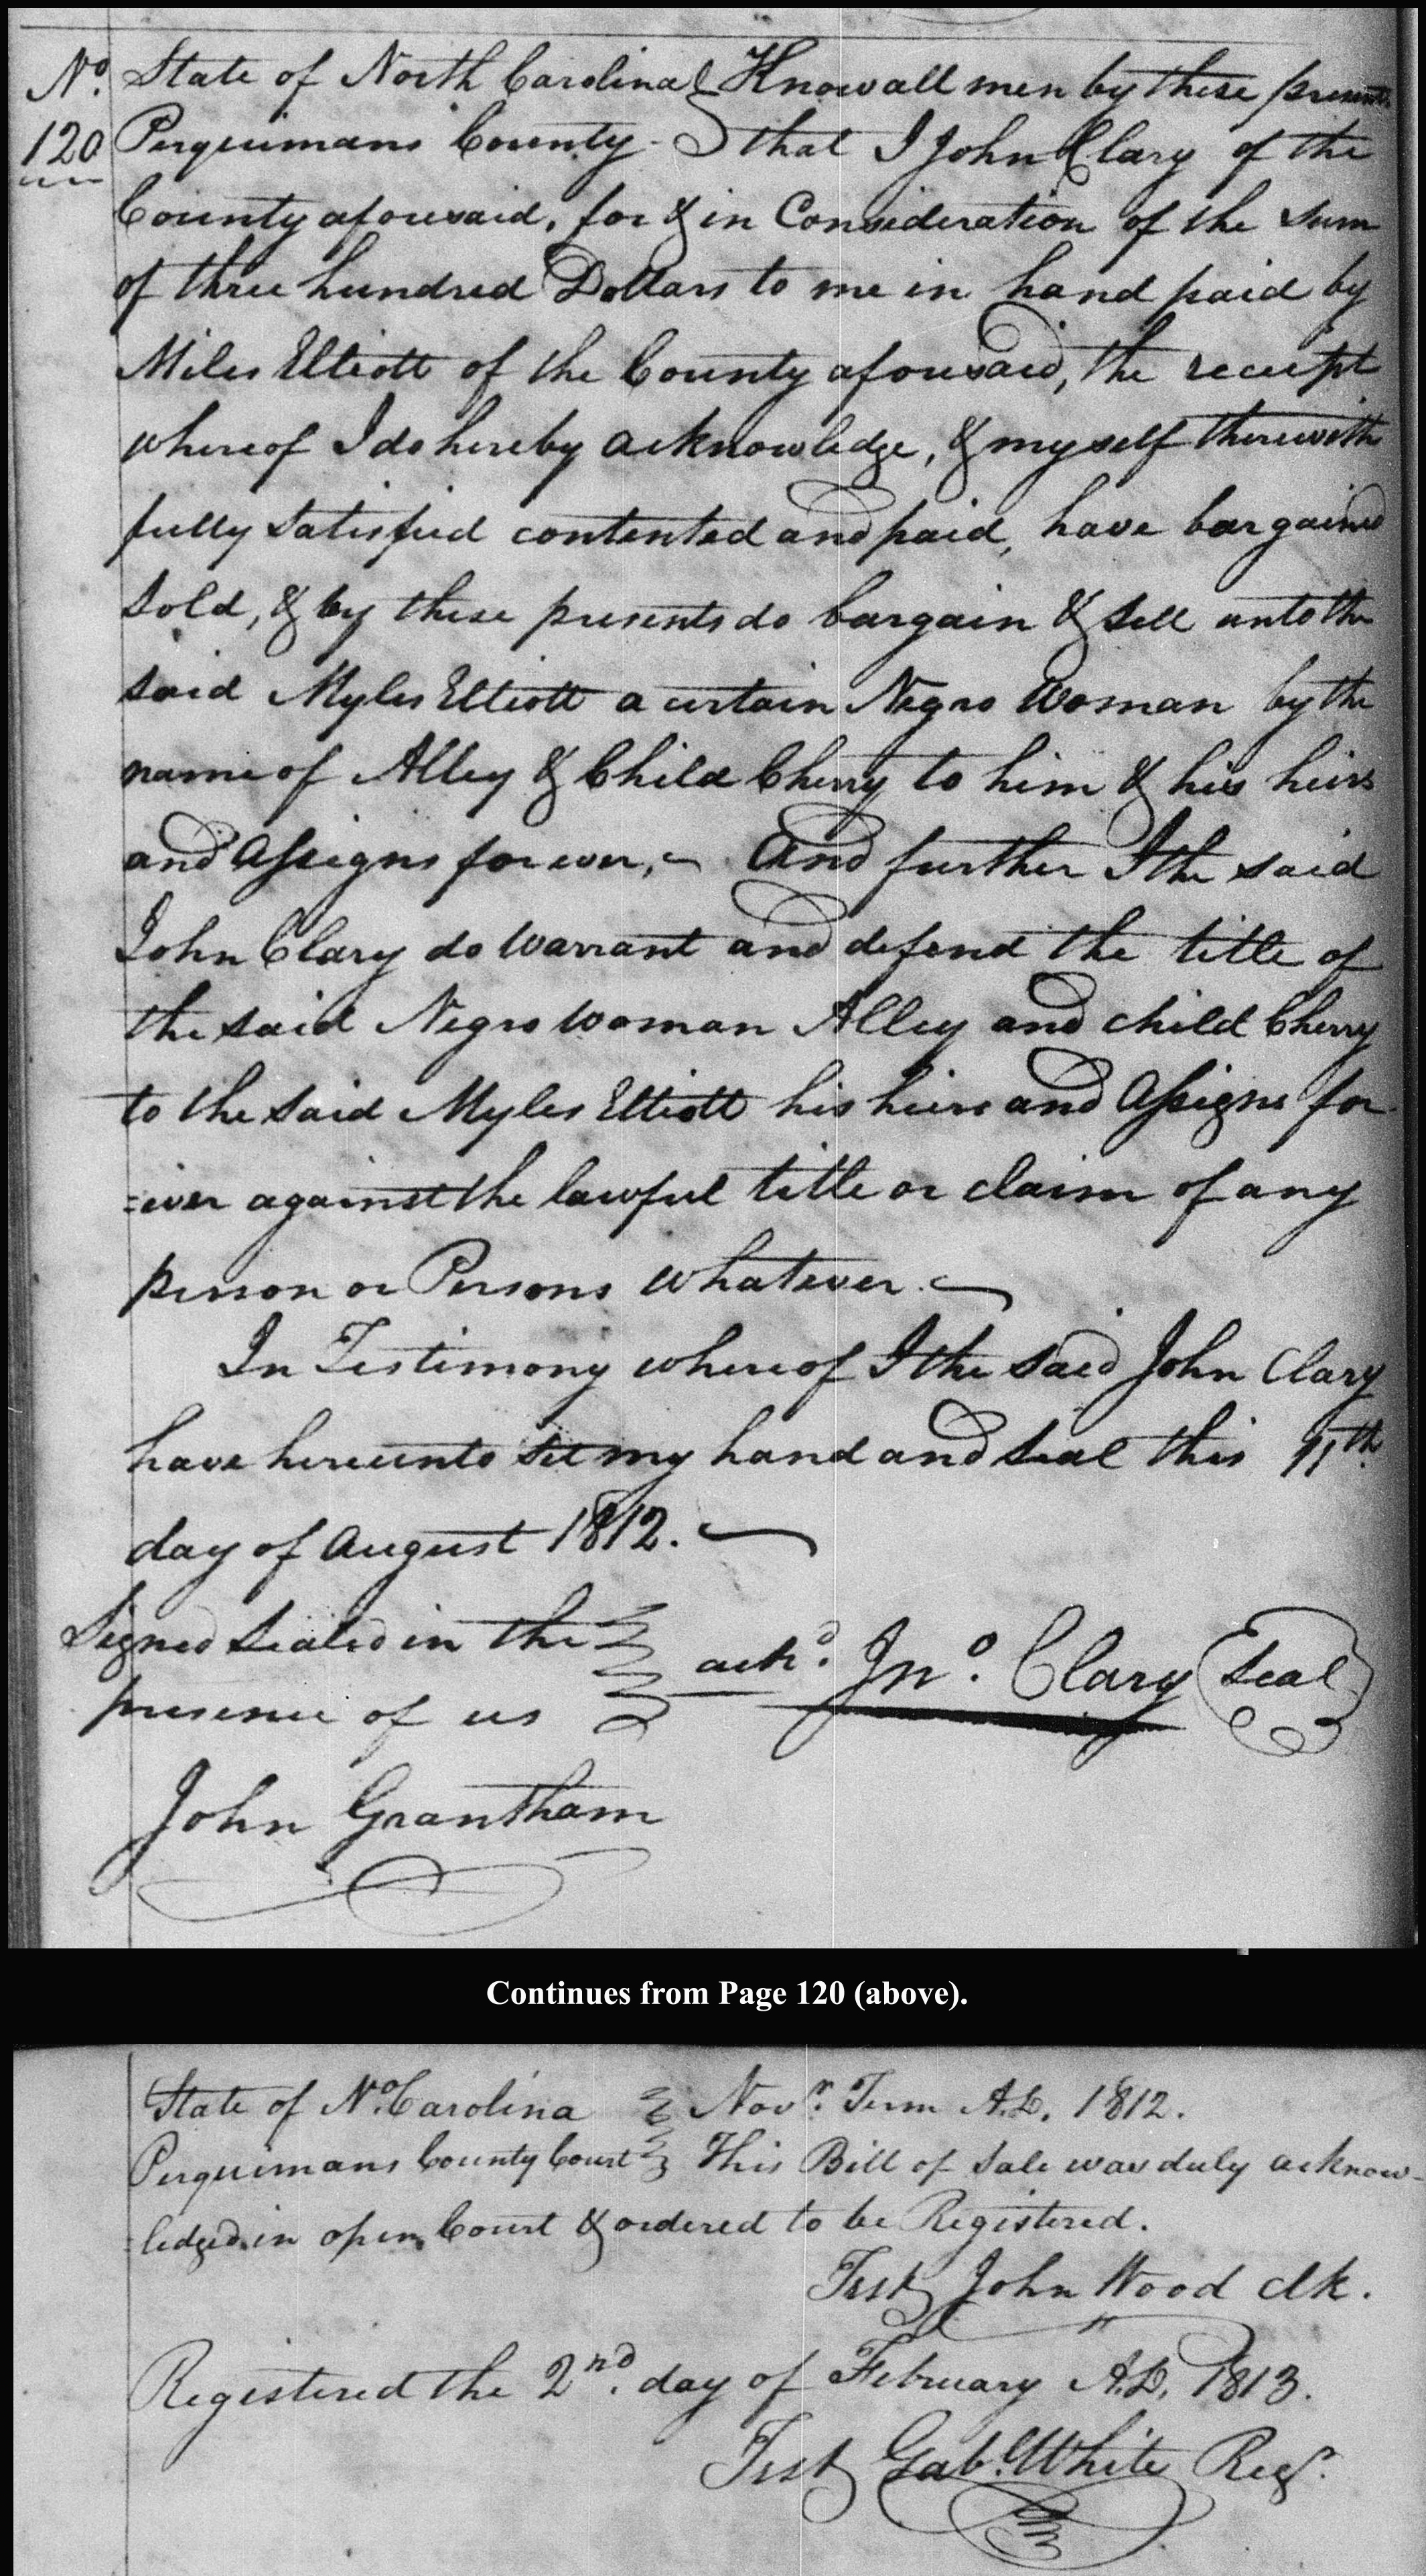 No. State of North Carolina } Know all men by these presents
120 Perquimans County - } that I John Clary of the
County aforesaid, for & in Consideration of the sum
of three hundred Dollars to me in hand paid by
Miles Elliott of the County aforesaid, the receipt
whereof I do hereby acknowledge, & myself therewith
fully satisfied contented and paid, have bargained
sold, & by these presents do bargain & sell unto the
said Myles Elliott a certain Negro Woman by the
name of Alley & Child Cherry to him & his heirs
and Assigns forever, ~ And further I the said
John Clary do Warrant and defend the title of
the said Negro Woman Alley and child Cherry
to the said Myles Elliott his heirs and Assigns for
=ever against the lawful title or claim of any
person or Persons whatever. ~
In Testimony whereof I the said John Clary
have hereunto set my hand and seal this 11th
day of August 1812. ~
Signed Sealed in the } ackd. Jno. Clary (Seal)
presence of us }
John Grantham
Continues from Page 120 (above).
State of No. Carolina } Novr. Term A.D. 1812.
Perquimans County Court } This Bill of Sale was duly acknow-
-ledged in open Court & ordered to be Registered.
Test John Wood clk.
Registered the 2nd. day of February A.D. 1813.
Test Gab. White Regr.